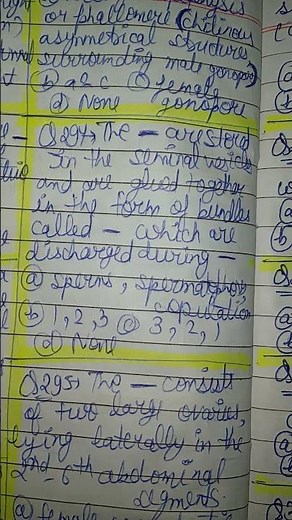 or phallomere (chitinous
asymmetrical structures
surrounding male gonopore)
(b) a & c (c) female
(d) None gonopore
Q294, The — are stored
in the seminal vesicles
and are glued together
in the form of bundles
called — which are
discharged during —
(a) sperms, spermatophores
copulation
(b) 1, 2, 3 (c) 3, 2, 1
(d) None
Q295, The — consist
of two large ovaries,
lying laterally in the
2nd - 6th abdominal
segments.
(a) female